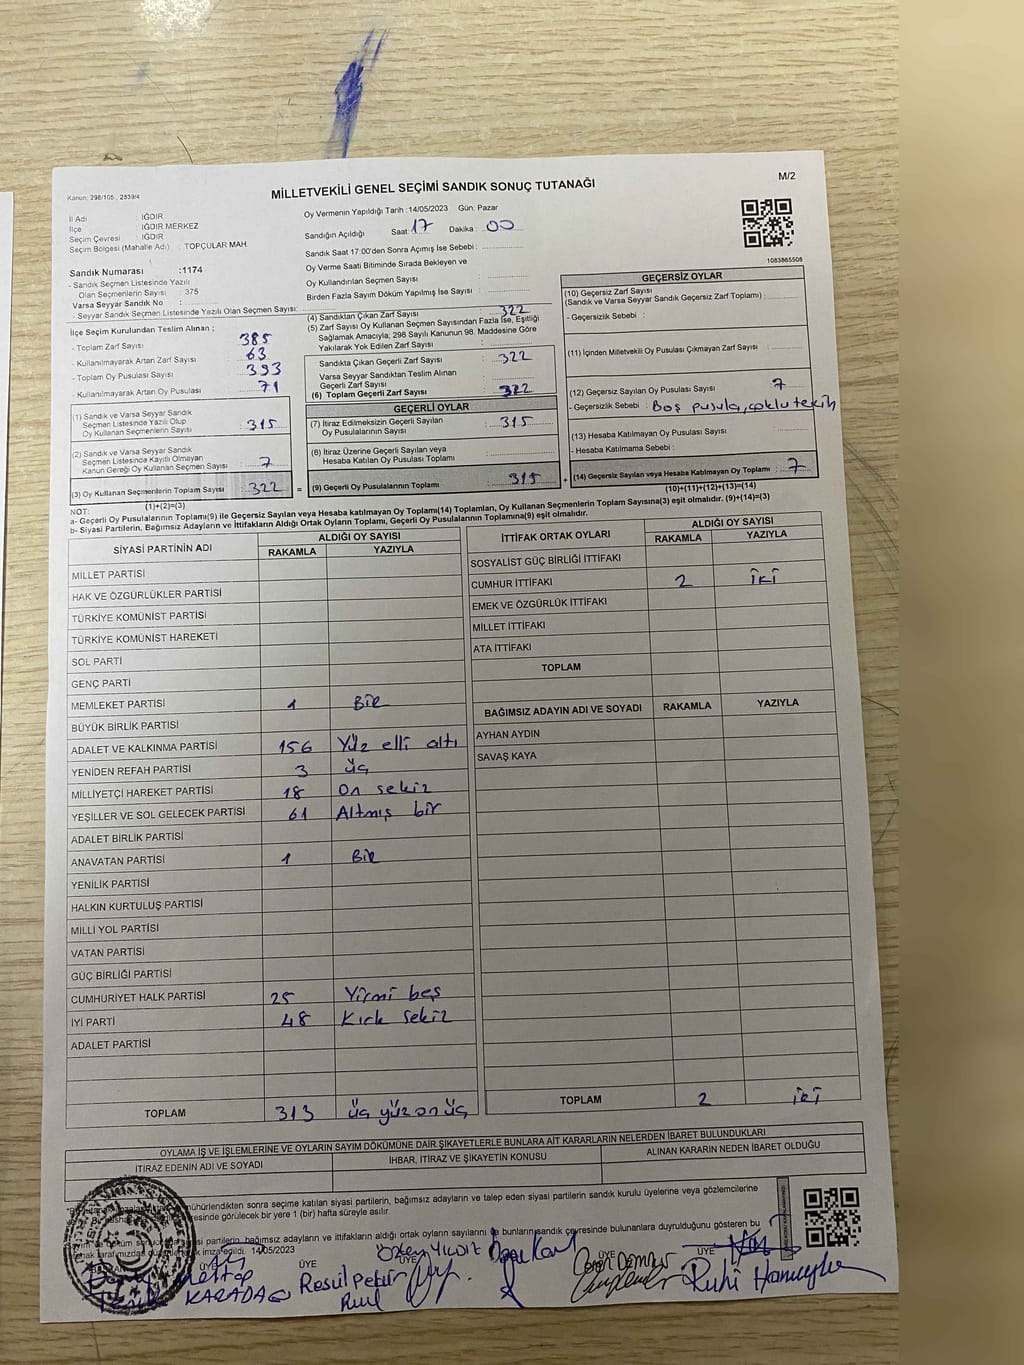 Kanun: 298/105, 2839/4
MİLLETVEKİLİ GENEL SEÇİMİ SANDIK SONUÇ TUTANAĞI
M/2
İl Adı : IĞDIR
İlçe : IĞDIR MERKEZ
Seçim Çevresi : IĞDIR
Seçim Bölgesi (Mahalle Adı) : TOPÇULAR MAH.
Sandık Numarası :1174
- Sandık Seçmen Listesinde Yazılı
Olan Seçmenlerin Sayısı : 375
Varsa Seyyar Sandık No :
- Seyyar Sandık Seçmen Listesinde Yazılı Olan Seçmen Sayısı:
Oy Vermenin Yapıldığı Tarih :14/05/2023 Gün: Pazar
Sandığın Açıldığı Saat: 17 Dakika : 00
Sandık Saat 17:00'den Sonra Açımış İse Sebebi :
Oy Verme Saati Bitiminde Sırada Bekleyen ve
Oy Kullandırılan Seçmen Sayısı :
Birden Fazla Sayım Döküm Yapılmış İse Sayısı :
1083865508
İlçe Seçim Kurulundan Teslim Alınan ;
- Toplam Zarf Sayısı : 385
- Kullanılmayarak Artan Zarf Sayısı : 63
- Toplam Oy Pusulası Sayısı : 393
- Kullanılmayarak Artan Oy Pusulası : 71
(1) Sandık ve Varsa Seyyar Sandık
Seçmen Listesinde Yazılı Olup
Oy Kullanan Seçmenlerin Sayısı : 315
(2) Sandık ve Varsa Seyyar Sandık
Seçmen Listesinde Kayıtlı Olmayan
Kanun Gereği Oy Kullanan Seçmen Sayısı : 7
(3) Oy Kullanan Seçmenlerin Toplam Sayısı : 322
(1)+(2)=(3)
(4) Sandıktan Çıkan Zarf Sayısı : 322
(5) Zarf Sayısı Oy Kullanan Seçmen Sayısından Fazla İse, Eşitliği
Sağlamak Amacıyla; 298 Sayılı Kanunun 98. Maddesine Göre
Yakılarak Yok Edilen Zarf Sayısı :
Sandıkta Çıkan Geçerli Zarf Sayısı : 322
Varsa Seyyar Sandıktan Teslim Alınan
Geçerli Zarf Sayısı :
(6) Toplam Geçerli Zarf Sayısı : 322
GEÇERLİ OYLAR
(7) İtiraz Edilmeksizin Geçerli Sayılan
Oy Pusulalarının Sayısı : 315
(8) İtiraz Üzerine Geçerli Sayılan veya
Hesaba Katılan Oy Pusulası Toplamı :
= (9) Geçerli Oy Pusulalarının Toplamı : 315
GEÇERSİZ OYLAR
(10) Geçersiz Zarf Sayısı
(Sandık ve Varsa Seyyar Sandık Geçersiz Zarf Toplamı) :
- Geçersizlik Sebebi :
(11) İçinden Milletvekili Oy Pusulası Çıkmayan Zarf Sayısı :
(12) Geçersiz Sayılan Oy Pusulası Sayısı : 7
- Geçersizlik Sebebi : Boş pusula, çoklu tercih
(13) Hesaba Katılmayan Oy Pusulası Sayısı :
- Hesaba Katılmama Sebebi :
+ (14) Geçersiz Sayılan veya Hesaba Katılmayan Oy Toplamı : 7
(10)+(11)+(12)+(13)=(14)
NOT:
a- Geçerli Oy Pusulalarının Toplamı(9) ile Geçersiz Sayılan veya Hesaba katılmayan Oy Toplamı(14) Toplamları, Oy Kullanan Seçmenlerin Toplam Sayısına(3) eşit olmalıdır. (9)+(14)=(3)
b- Siyasi Partilerin, Bağımsız Adayların ve İttifakların Aldığı Ortak Oyların Toplamı, Geçerli Oy Pusulalarının Toplamına(9) eşit olmalıdır.
SİYASİ PARTİNİN ADI ALDIĞI OY SAYISI
RAKAMLA YAZIYLA
MİLLET PARTİSİ
HAK VE ÖZGÜRLÜKLER PARTİSİ
TÜRKİYE KOMÜNİST PARTİSİ
TÜRKİYE KOMÜNİST HAREKETİ
SOL PARTİ
GENÇ PARTİ
MEMLEKET PARTİSİ 1 Bir
BÜYÜK BİRLİK PARTİSİ
ADALET VE KALKINMA PARTİSİ 156 Yüz elli altı
YENİDEN REFAH PARTİSİ 3 üç
MİLLİYETÇİ HAREKET PARTİSİ 18 On sekiz
YEŞİLLER VE SOL GELECEK PARTİSİ 61 Altmış bir
ADALET BİRLİK PARTİSİ
ANAVATAN PARTİSİ 1 Bir
YENİLİK PARTİSİ
HALKIN KURTULUŞ PARTİSİ
MİLLİ YOL PARTİSİ
VATAN PARTİSİ
GÜÇ BİRLİĞİ PARTİSİ
CUMHURİYET HALK PARTİSİ 25 Yirmi beş
İYİ PARTİ 48 Kırk sekiz
ADALET PARTİSİ
TOPLAM 313 üç yüz on üç
İTTİFAK ORTAK OYLARI ALDIĞI OY SAYISI
RAKAMLA YAZIYLA
SOSYALİST GÜÇ BİRLİĞİ İTTİFAKI
CUMHUR İTTİFAKI 2 iki
EMEK VE ÖZGÜRLÜK İTTİFAKI
MİLLET İTTİFAKI
ATA İTTİFAKI
TOPLAM
BAĞIMSIZ ADAYIN ADI VE SOYADI RAKAMLA YAZIYLA
AYHAN AYDIN
SAVAŞ KAYA
TOPLAM 2 iki
OYLAMA İŞ VE İŞLEMLERİNE VE OYLARIN SAYIM DÖKÜMÜNE DAİR ŞİKAYETLERLE BUNLARA AİT KARARLARIN NELERDEN İBARET BULUNDUKLARI
İTİRAZ EDENİN ADI VE SOYADI İHBAR, İTİRAZ VE ŞİKAYETİN KONUSU ALINAN KARARIN NEDEN İBARET OLDUĞU
mühürlendikten sonra seçime katılan siyasi partilerin, bağımsız adayların ve talep eden siyasi partilerin sandık kurulu üyelerine veya gözlemcilerine
görülecek bir yere 1 (bir) hafta süreyle asılır.
partilerin, bağımsız adayların ve ittifakların aldığı ortak oyların sayılarını bunların sandık çevresinde bulunanlara duyrulduğunu gösteren bu
imza edildi. 14/05/2023
ÜYE ÜYE ÜYE ÜYE ÜYE
KARADAĞ Resul Peker Özlem Yıldız Ceren Demir Ruhi